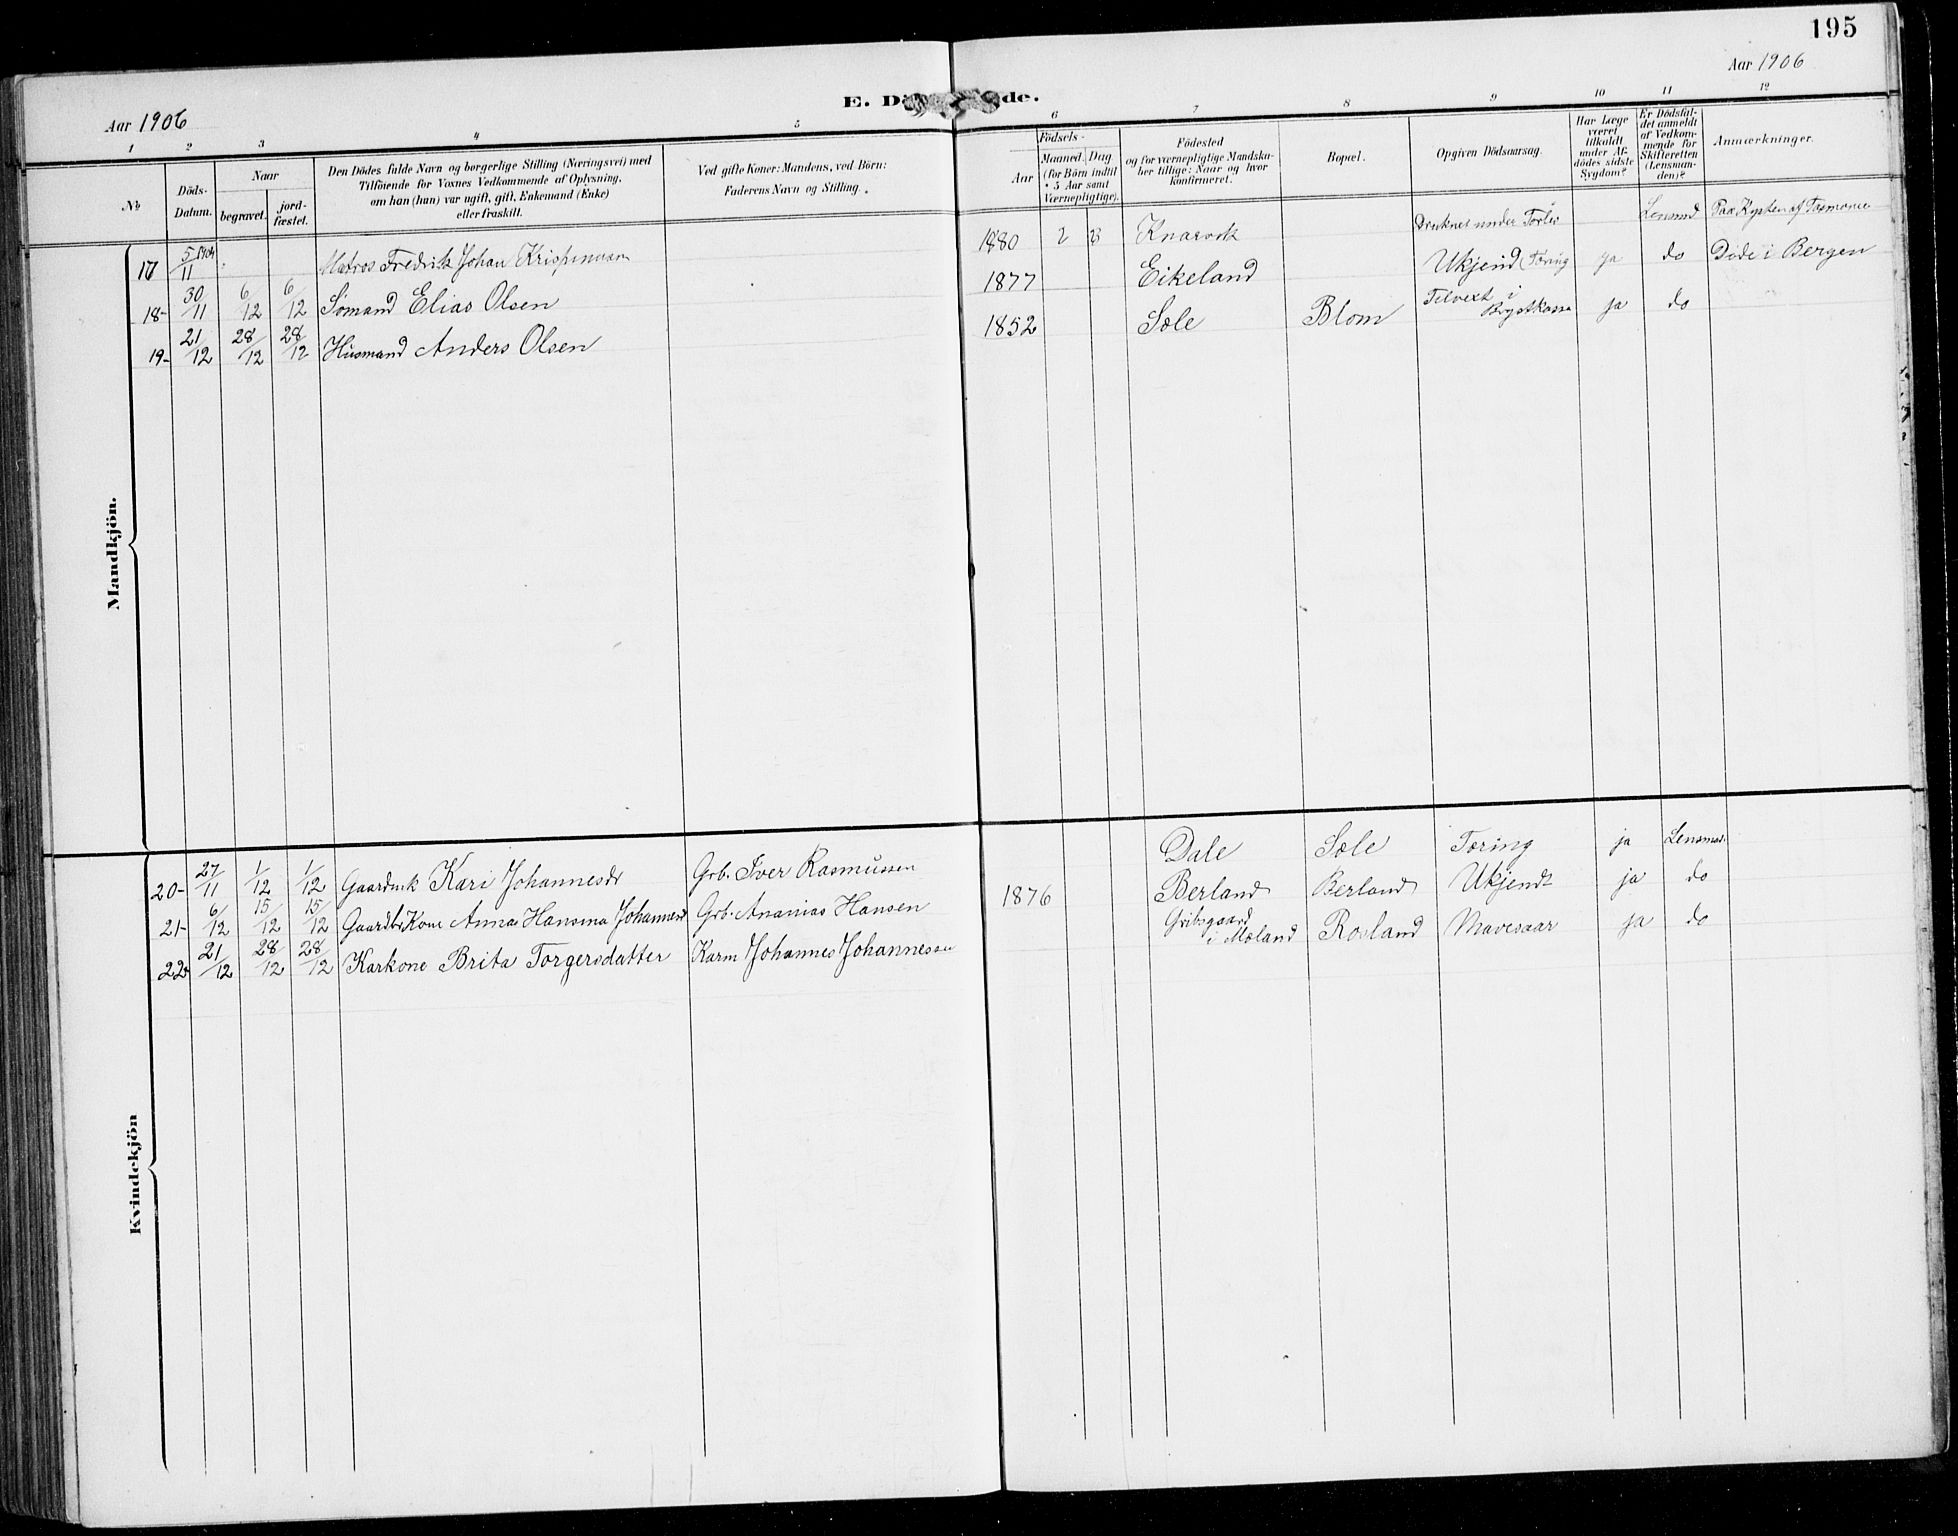 195
Aar 1906
Aar 1906
E. Dö de.
1 2 3 4 5 6 7 8 9 10 11 12
No
Döds-Datum.
Naar
begravet. jord-fæstet.
Den Dödes fulde Navn og borgerlige Stilling (Næringsvei) med
Tilföiende for Voxnes Vedkommende af Oplysning,
om han (hun) var ugift, gift, Enkemand (Enke)
eller fraskilt.
Ved gifte Koner: Mandens, ved Börn:
Faderens Navn og Stilling.
Födsels-
Aar
Maaned. Dag
(for Börn indtil
5 Aar samt
Værnepligtige).
Födested
og for værnepligtige Mandska-
ber tillige: Naar og hvor
konfirmeret.
Bopæl.
Opgiven Dödsaarsag.
Har Læge
været
tilkaldt
under Af-
dödes sidste
Sygdom?
Er Dödsfal-
det anmeldt
af Vedkom-
mende for
Skifteretten
(Lensman-
den)?
Anmærkninger.
Mandkjön.
17 5/11 1904 Matros Fredrik Johan 1880 2 Knarvik Druknet under Lensmd Paa Kysten af Tasmania
18- 30/11 6/12 6/12 Sømand Elias Olsen 1877 Eikeland Ukjend (Tæring ja do Døde i Bergen
19- 21/12 28/12 28/12 Husmand Anders Olsen 1852 Sæle Blom Tilvext i Brystkasse ja do
Kvindekjön
20- 27/11 1/12 1/12 Kari Johannesdr Grb. Iver Rasmussen Dale Sæle Tæring ja Lensmd.
21- 6/12 15/12 15/12 Gaardbr Kone Anna Hansina Johannesd Grb. Ananias Hansen 1876 Berland Berland Ukjendt ja do
22- 21/12 28/12 28/12 Karkone Brita Torgersdatter Karm Johannes Johannessen i Mæland Rosland Mavesaar ja do